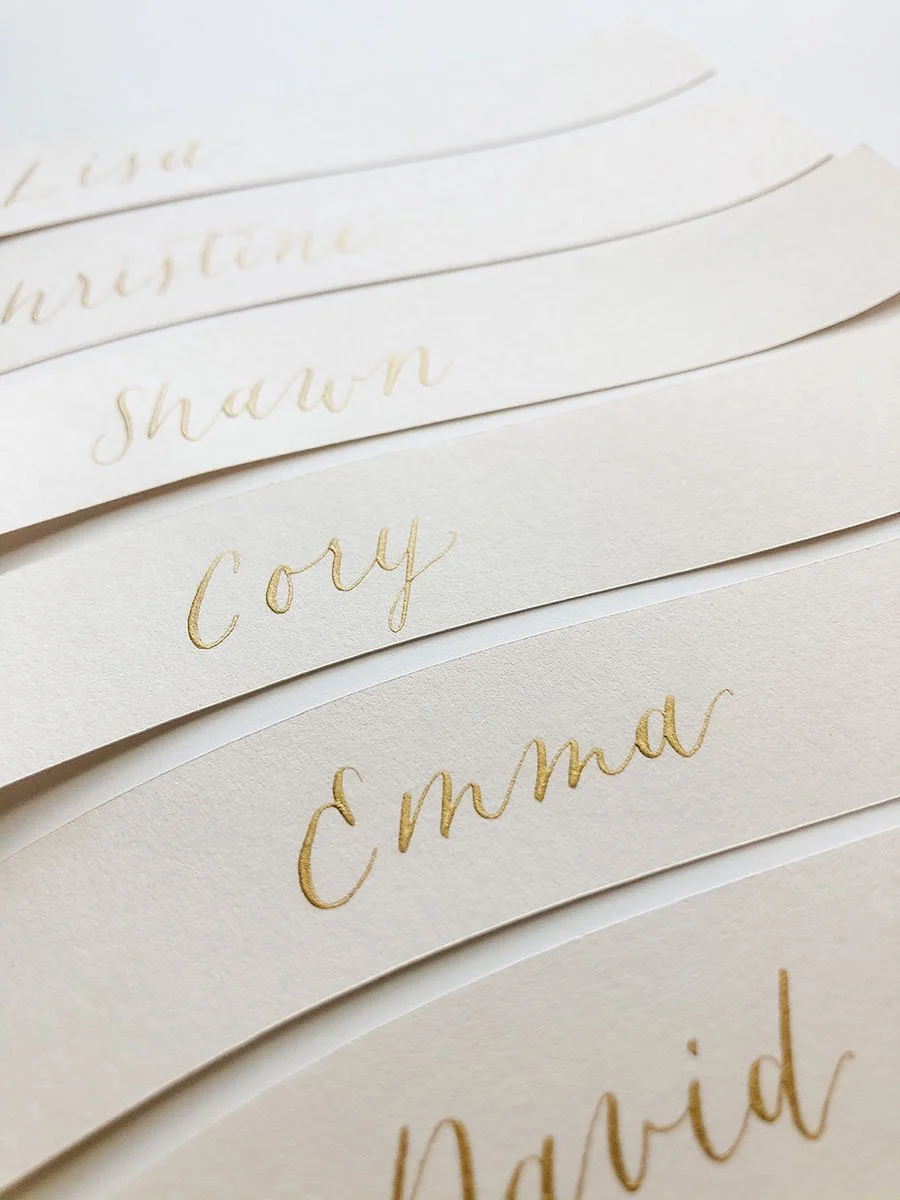 Lisa
hristine
Shawn
Cory
Emma
David